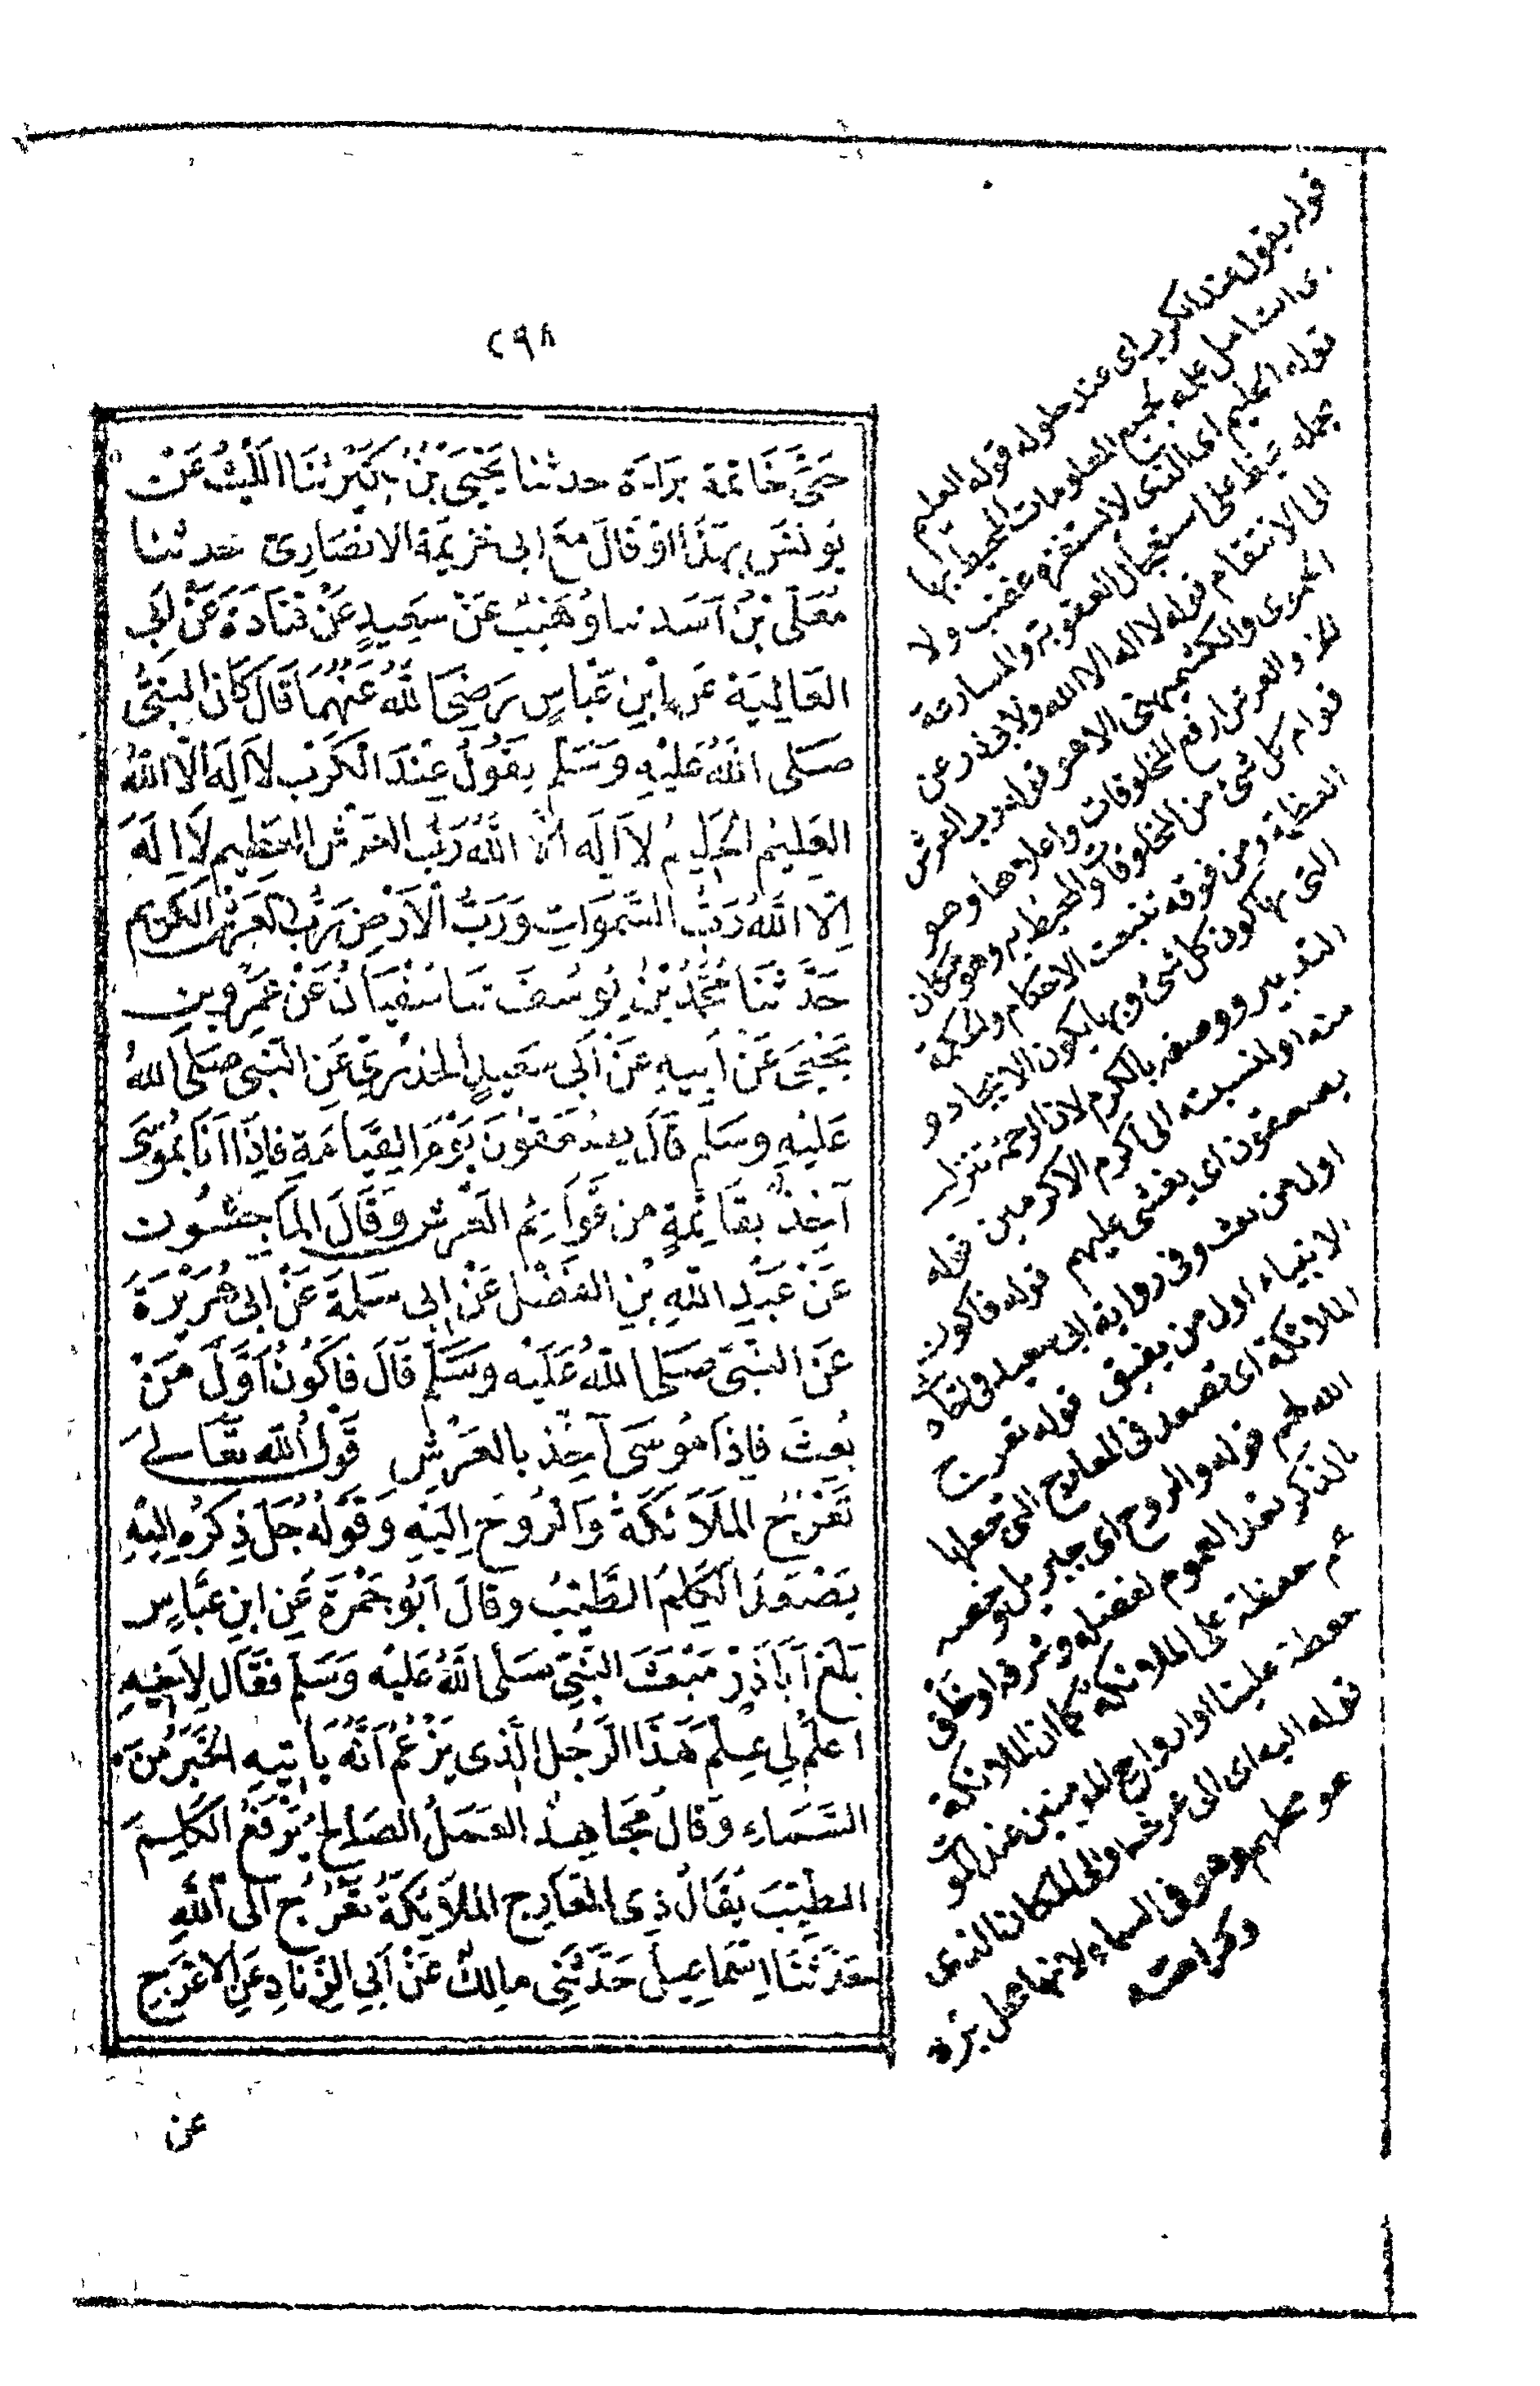 ٢٩٨
حَتَّى خَاتِمَة بَرَاءَة حدثنا يَحْيَى بْنُ بُكَيْرٍ ثنَا اللَّيْثُ عَنْ
يُونسَ بِهَذَا وَقَالَ مَعَ ابى خزيمَة الانصَارِىّ حدثنا
مُعَلَّى بْنُ اَسَد ثنا وُهَيْبٌ عَنْ سَعِيدٍ عَنْ قتَادَةَ عَنْ اَبِى
العَالِيَة عَن ابْنِ عَبَّاسٍ رَضِىَ اللهُ عَنْهُمَا قَالَ كَانَ النبىُّ
صَلى اللهُ عَليْهِ وَسَلّم يقُولُ عِنْدَ الْكَرْب لاَ اِلَهَ اِلَّا اللهُ
العَلِيْم الحَلِيم لاَ اِلَه اِلّا اللهُ رَبُّ العَرْش العَظِيم لاَ اِلَهَ
اِلّا اللهُ رَبُّ السَّموَاتِ وَرَبُّ الْاَرْضِ رَبُّ العَرْش الكَرِيم
حَدَّثنَا مُحَمَّدُ بْنُ يُوسُفَ ثنَا سُفْيَانُ عَنْ عَمْرِو بنِ
يَحْيَى عَنْ اَبِيهِ عَنْ اَبى سَعِيدٍ الخدْرِىّ عَنِ النبى صَلى اللهُ
عَليْهِ وسَلم قَالَ يصْعَقُونَ يَوْمَ القِيَامَةِ فَاِذَا اَنَا بمُوسَى
آخِذٌ بقَائِمَةٍ من قَوَائِمِ العَرْشِ وَقَالَ المَاجِشُون
عَنْ عَبْدِ اللهِ بْنِ الفَضْل عَنْ ابى سَلمَةَ عَنْ ابى هُرَيْرَةَ
عَنِ النبىّ صَلى اللهُ عَليْه وَسَلّم قَالَ فَاَكُونُ اَوَّلَ مَنْ
بُعِثَ فَاِذَا مُوسَى آخِذٌ بالعَرْشِ قَوْلُ اللهِ تعَالىَ
تَعْرُجُ المَلَائكَةُ وَالرُوحُ اِليْهِ وَقَوْلهُ جَلّ ذِكرُه اِليْهِ
يَصْعَدُ الْكَلِمُ الطَّيِّبُ وقَالَ اَبُو جَمْرَةَ عَنِ ابنِ عَبَّاسٍ
بَلغ اَبَا ذَرٍّ مَبْعَثُ النبىّ صَلى اللهُ عَليْه وَسَلم فقَال لِاَخِيهِ
اعْلَمْ لِى عِلْمَ هَذَا الرَجُل الَّذى يَزْعُمُ اَنَّهُ يَأتِيهِ الخَبَرُ مِنَ
السَّمَاءِ وَقالَ مُجَاهِدٌ العَمَلُ الصَالحُ يَرْفَعُ الكَلِمَ
الطيّبَ يُقَالُ ذِى المَعَارِج المَلَائِكَةُ تعْرُجُ اَلى اللهِ
حدَّثنَا اِسْمَاعِيلُ حَدَّثنِى مالِكٌ عَنْ اَبِى الزِّنَادِ عَنِ الاَعْرَجِ
عن
قوله يقول عند الكرب اى عند حلوله قوله العليم
قوله الحليم اى الذى لا يستفزه غضب ولا
يحمله غيظ على استعجال العقوبة والمسارعة
الى الانتقام قوله لا اله الا الله
والعرش ارفع المخلوقات واعلاها وهو
قوام كل شئ من المخلوقات والمحيط به وهو مكان
العظمة ومن فوقه تنبعث الاحكام والحكمة
التى بها كون كل شئ وبها يكون الايجاد و
التدبير ووصفه بالكرم لان الرحمة تنزل
منه او لنسبته الى اكرم الاكرمين قوله
يصعقون اى يغشى عليهم قوله فاكون
اول من بعث وفى رواية ابى سعيد
الانبياء اول من يفيق قوله تعرج
الملائكة اى تصعد فى المعارج التى جعلها
الله لهم قوله والروح اى جبريل وخصه
بالذكر بعد العموم لفضله وشرفه او خلق
هم حفظة على الملائكة كما ان الملائكة
حفظة علينا او ارواح المؤمنين عند الموت
قوله اليه اى الى عرشه او الى المكان الذى
هو محلهم وهو فى السماء لانها محل بره
وكرامته